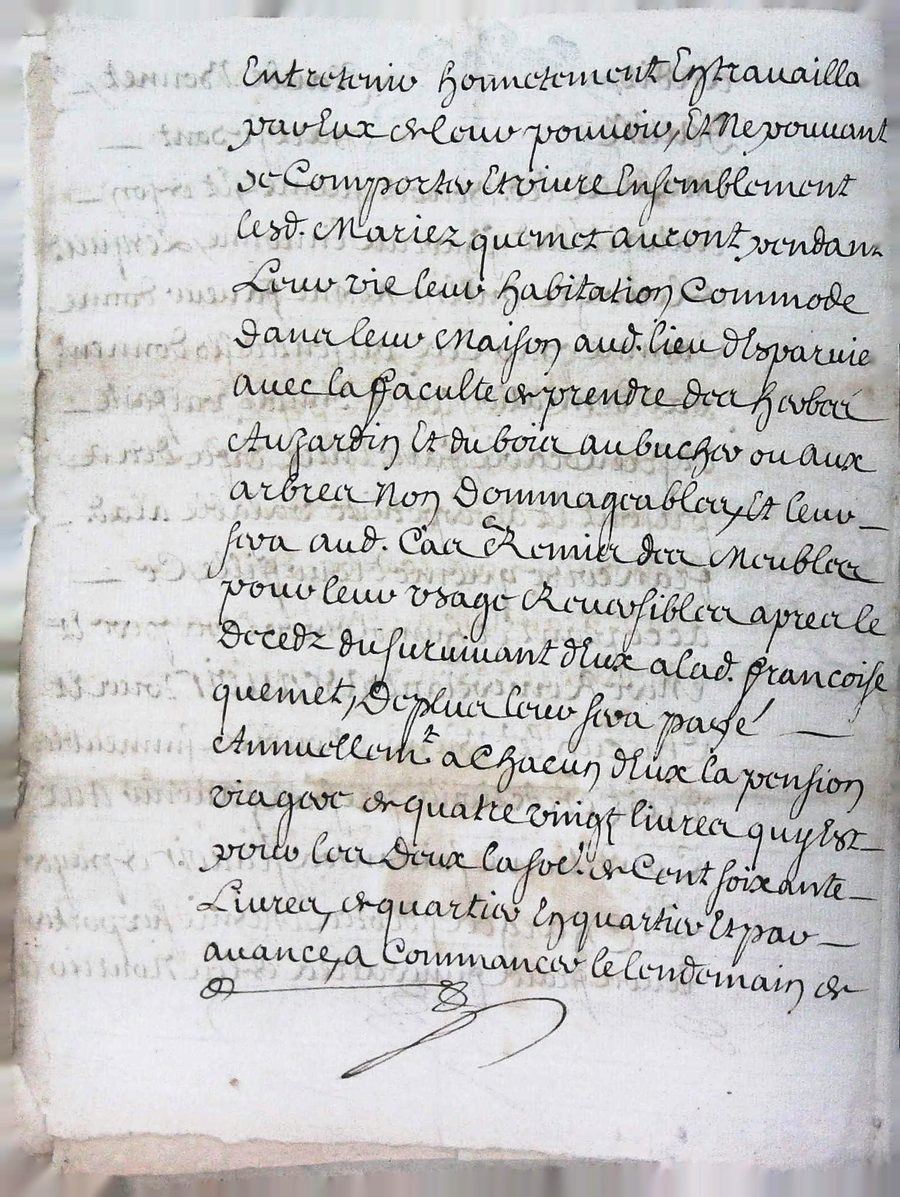 Entretenir honnetement En travailla
par Eux de leur pouvoir, Et Ne pouvant
se Comporter Et vivre Ensemblement
lesd. Mariez quemet auront pendant
Leur vie leur habitation Commode
dans leur Maison aud. lieu d'Esparvie
avec la faculte de prendre des herbes
Au Jardin Et du bois au bucher ou aux
arbres Non Dommageables, Et leur
sera aud. Cas Remis des Meubles
pour leur usage Reversibles apres le
Decedz du survivant d'Eux a lad. francoise
quemet, De plus leur sera payé
Annuellemt. a Chacun d'Eux la pension
viagere de quatre vingt livres quy Est
pour les Deux la so.e de Cent soixante
Livres, de quartier En quartier Et par
avance, a Commancer le lendemain de